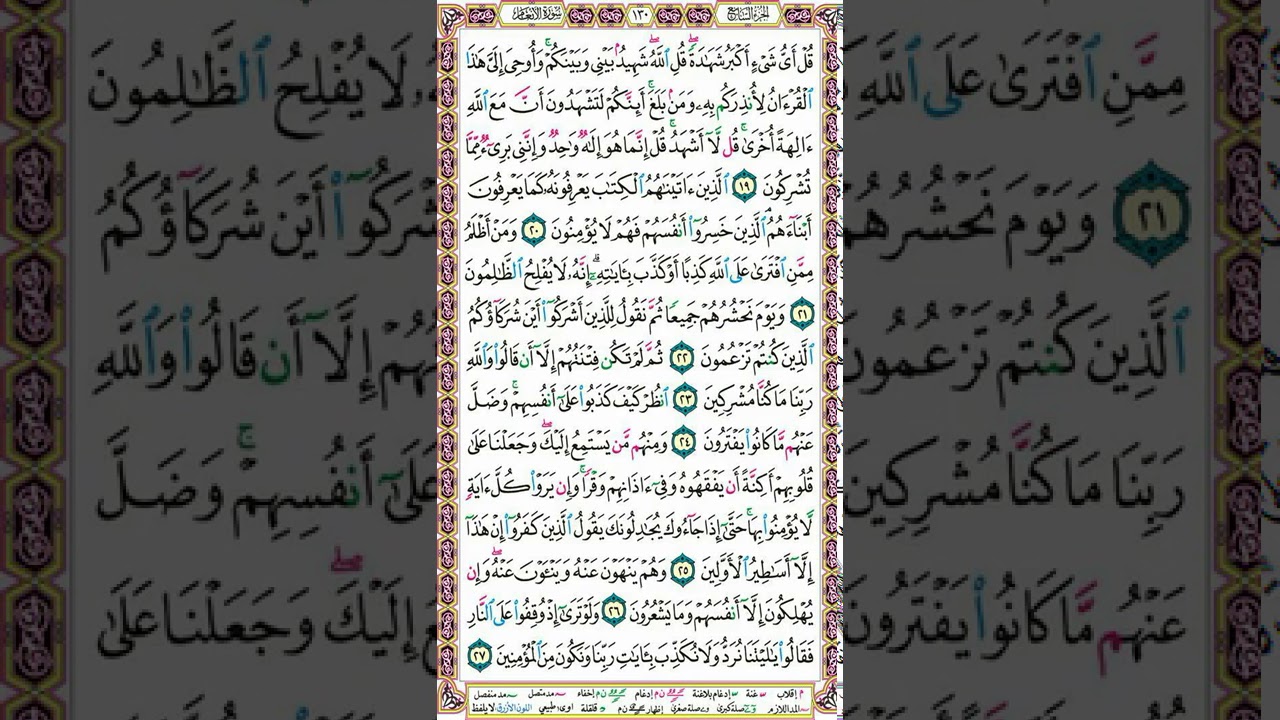 الجزء السابع
١٣٠
سورة الأنعام
قُلْ أَىُّ شَىْءٍ أَكْبَرُ شَهَٰدَةً ۖ قُلِ ٱللَّهُ ۖ شَهِيدٌۢ بَيْنِى وَبَيْنَكُمْ ۚ وَأُوحِىَ إِلَىَّ هَٰذَا
ٱلْقُرْءَانُ لِأُنذِرَكُم بِهِۦ وَمَنۢ بَلَغَ ۚ أَئِنَّكُمْ لَتَشْهَدُونَ أَنَّ مَعَ ٱللَّهِ
ءَالِهَةً أُخْرَىٰ ۚ قُل لَّآ أَشْهَدُ ۚ قُلْ إِنَّمَا هُوَ إِلَٰهٌ وَٰحِدٌ وَإِنَّنِى بَرِىٓءٌ مِّمَّا
تُشْرِكُونَ ١٩ ٱلَّذِينَ ءَاتَيْنَٰهُمُ ٱلْكِتَٰبَ يَعْرِفُونَهُۥ كَمَا يَعْرِفُونَ
أَبْنَآءَهُمُ ٱلَّذِينَ خَسِرُوٓا۟ أَنفُسَهُمْ فَهُمْ لَا يُؤْمِنُونَ ٢٠ وَمَنْ أَظْلَمُ
مِمَّنِ ٱفْتَرَىٰ عَلَى ٱللَّهِ كَذِبًا أَوْ كَذَّبَ بِـَٔايَٰتِهِۦٓ ۗ إِنَّهُۥ لَا يُفْلِحُ ٱلظَّٰلِمُونَ
٢١ وَيَوْمَ نَحْشُرُهُمْ جَمِيعًا ثُمَّ نَقُولُ لِلَّذِينَ أَشْرَكُوٓا۟ أَيْنَ شُرَكَآؤُكُمُ
ٱلَّذِينَ كُنتُمْ تَزْعُمُونَ ٢٢ ثُمَّ لَمْ تَكُن فِتْنَتُهُمْ إِلَّآ أَن قَالُوا۟ وَٱللَّهِ
رَبِّنَا مَا كُنَّا مُشْرِكِينَ ٢٣ ٱنظُرْ كَيْفَ كَذَبُوا۟ عَلَىٰٓ أَنفُسِهِمْ ۚ وَضَلَّ
عَنْهُم مَّا كَانُوا۟ يَفْتَرُونَ ٢٤ وَمِنْهُم مَّن يَسْتَمِعُ إِلَيْكَ ۖ وَجَعَلْنَا عَلَىٰ
قُلُوبِهِمْ أَكِنَّةً أَن يَفْقَهُوهُ وَفِىٓ ءَاذَانِهِمْ وَقْرًا ۚ وَإِن يَرَوْا۟ كُلَّ ءَايَةٍ
لَّا يُؤْمِنُوا۟ بِهَا ۚ حَتَّىٰٓ إِذَا جَآءُوكَ يُجَٰدِلُونَكَ يَقُولُ ٱلَّذِينَ كَفَرُوٓا۟ إِنْ هَٰذَآ
إِلَّآ أَسَٰطِيرُ ٱلْأَوَّلِينَ ٢٥ وَهُمْ يَنْهَوْنَ عَنْهُ وَيَنْـَٔوْنَ عَنْهُ ۖ وَإِن
يُهْلِكُونَ إِلَّآ أَنفُسَهُمْ وَمَا يَشْعُرُونَ ٢٦ وَلَوْ تَرَىٰٓ إِذْ وُقِفُوا۟ عَلَى ٱلنَّارِ
فَقَالُوا۟ يَٰلَيْتَنَا نُرَدُّ وَلَا نُكَذِّبَ بِـَٔايَٰتِ رَبِّنَا وَنَكُونَ مِنَ ٱلْمُؤْمِنِينَ ٢٧
م إقلاب غنة إدغام بلاغنة ن م إدغام ن م إخفاء مد متصل مد منفصل
المد اللازم صلة كبرى صلة صغرى إظهار ن م قلقلة اوى: طبيعي اللون الأزرق: لا يلفظ